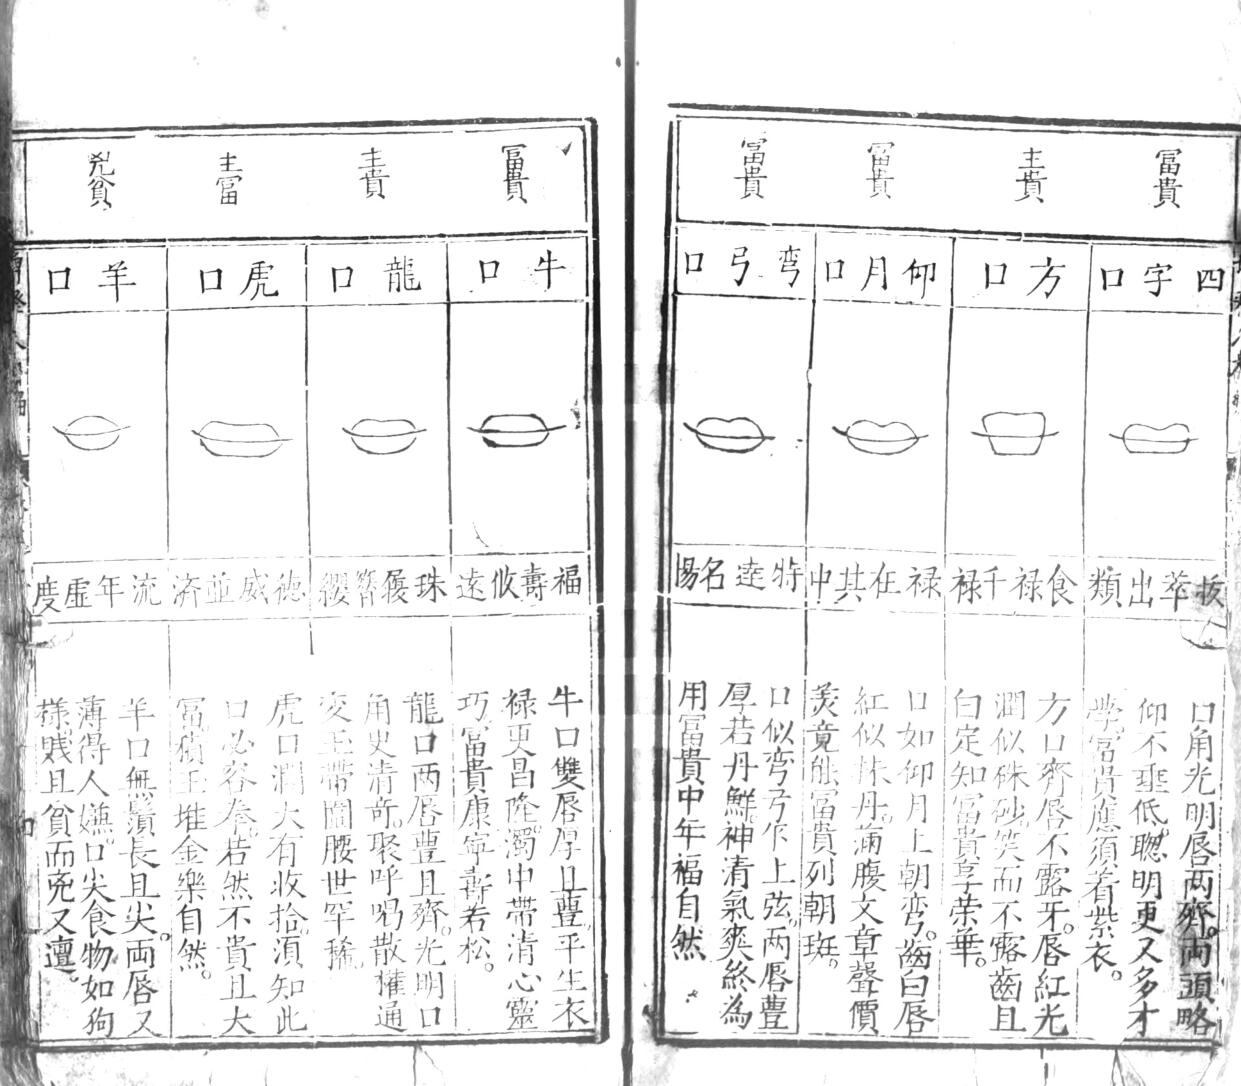 富貴
主貴
富貴
富貴
四字口
方口
仰月口
弯弓口
拔萃出類
食禄千禄
禄在其中
特逹名揚
口角光明唇两齊。両頭略
仰不垂低。聰明更又多才
學。富貴應須着紫衣。
方口齊唇不露牙。唇紅光
潤似硃砂。笑而不露齒且
白。定知富貴享荣華。
口如仰月上朝弯。齒白唇
紅似抹丹。滿腹文章聲價
美。竟能富貴列朝班。
口似弯弓乍上弦。两唇豊
厚若丹鮮。神清氣爽終為
用。富貴中年福自然
富貴
主貴
主富
兇貧
牛口
龍口
虎口
羊口
福壽攸逺
珠履簪纓
德威並済
流年虛度
牛口雙唇厚且豊。平生衣
禄更昌隆。濁中帶清心靈
巧。富貴康寧壽若松。
龍口两唇豊且齊。光明口
角更清奇。聚呼喝散權通
变。玉帶圍腰世罕稀。
虎口濶大有收拾。湏知此
口必容拳。若然不貴且大
富。積玉堆金樂自然。
羊口無鬚長且尖。両唇又
薄得人嫌。口尖食物如狗
樣。賤且貧而兇又邅。